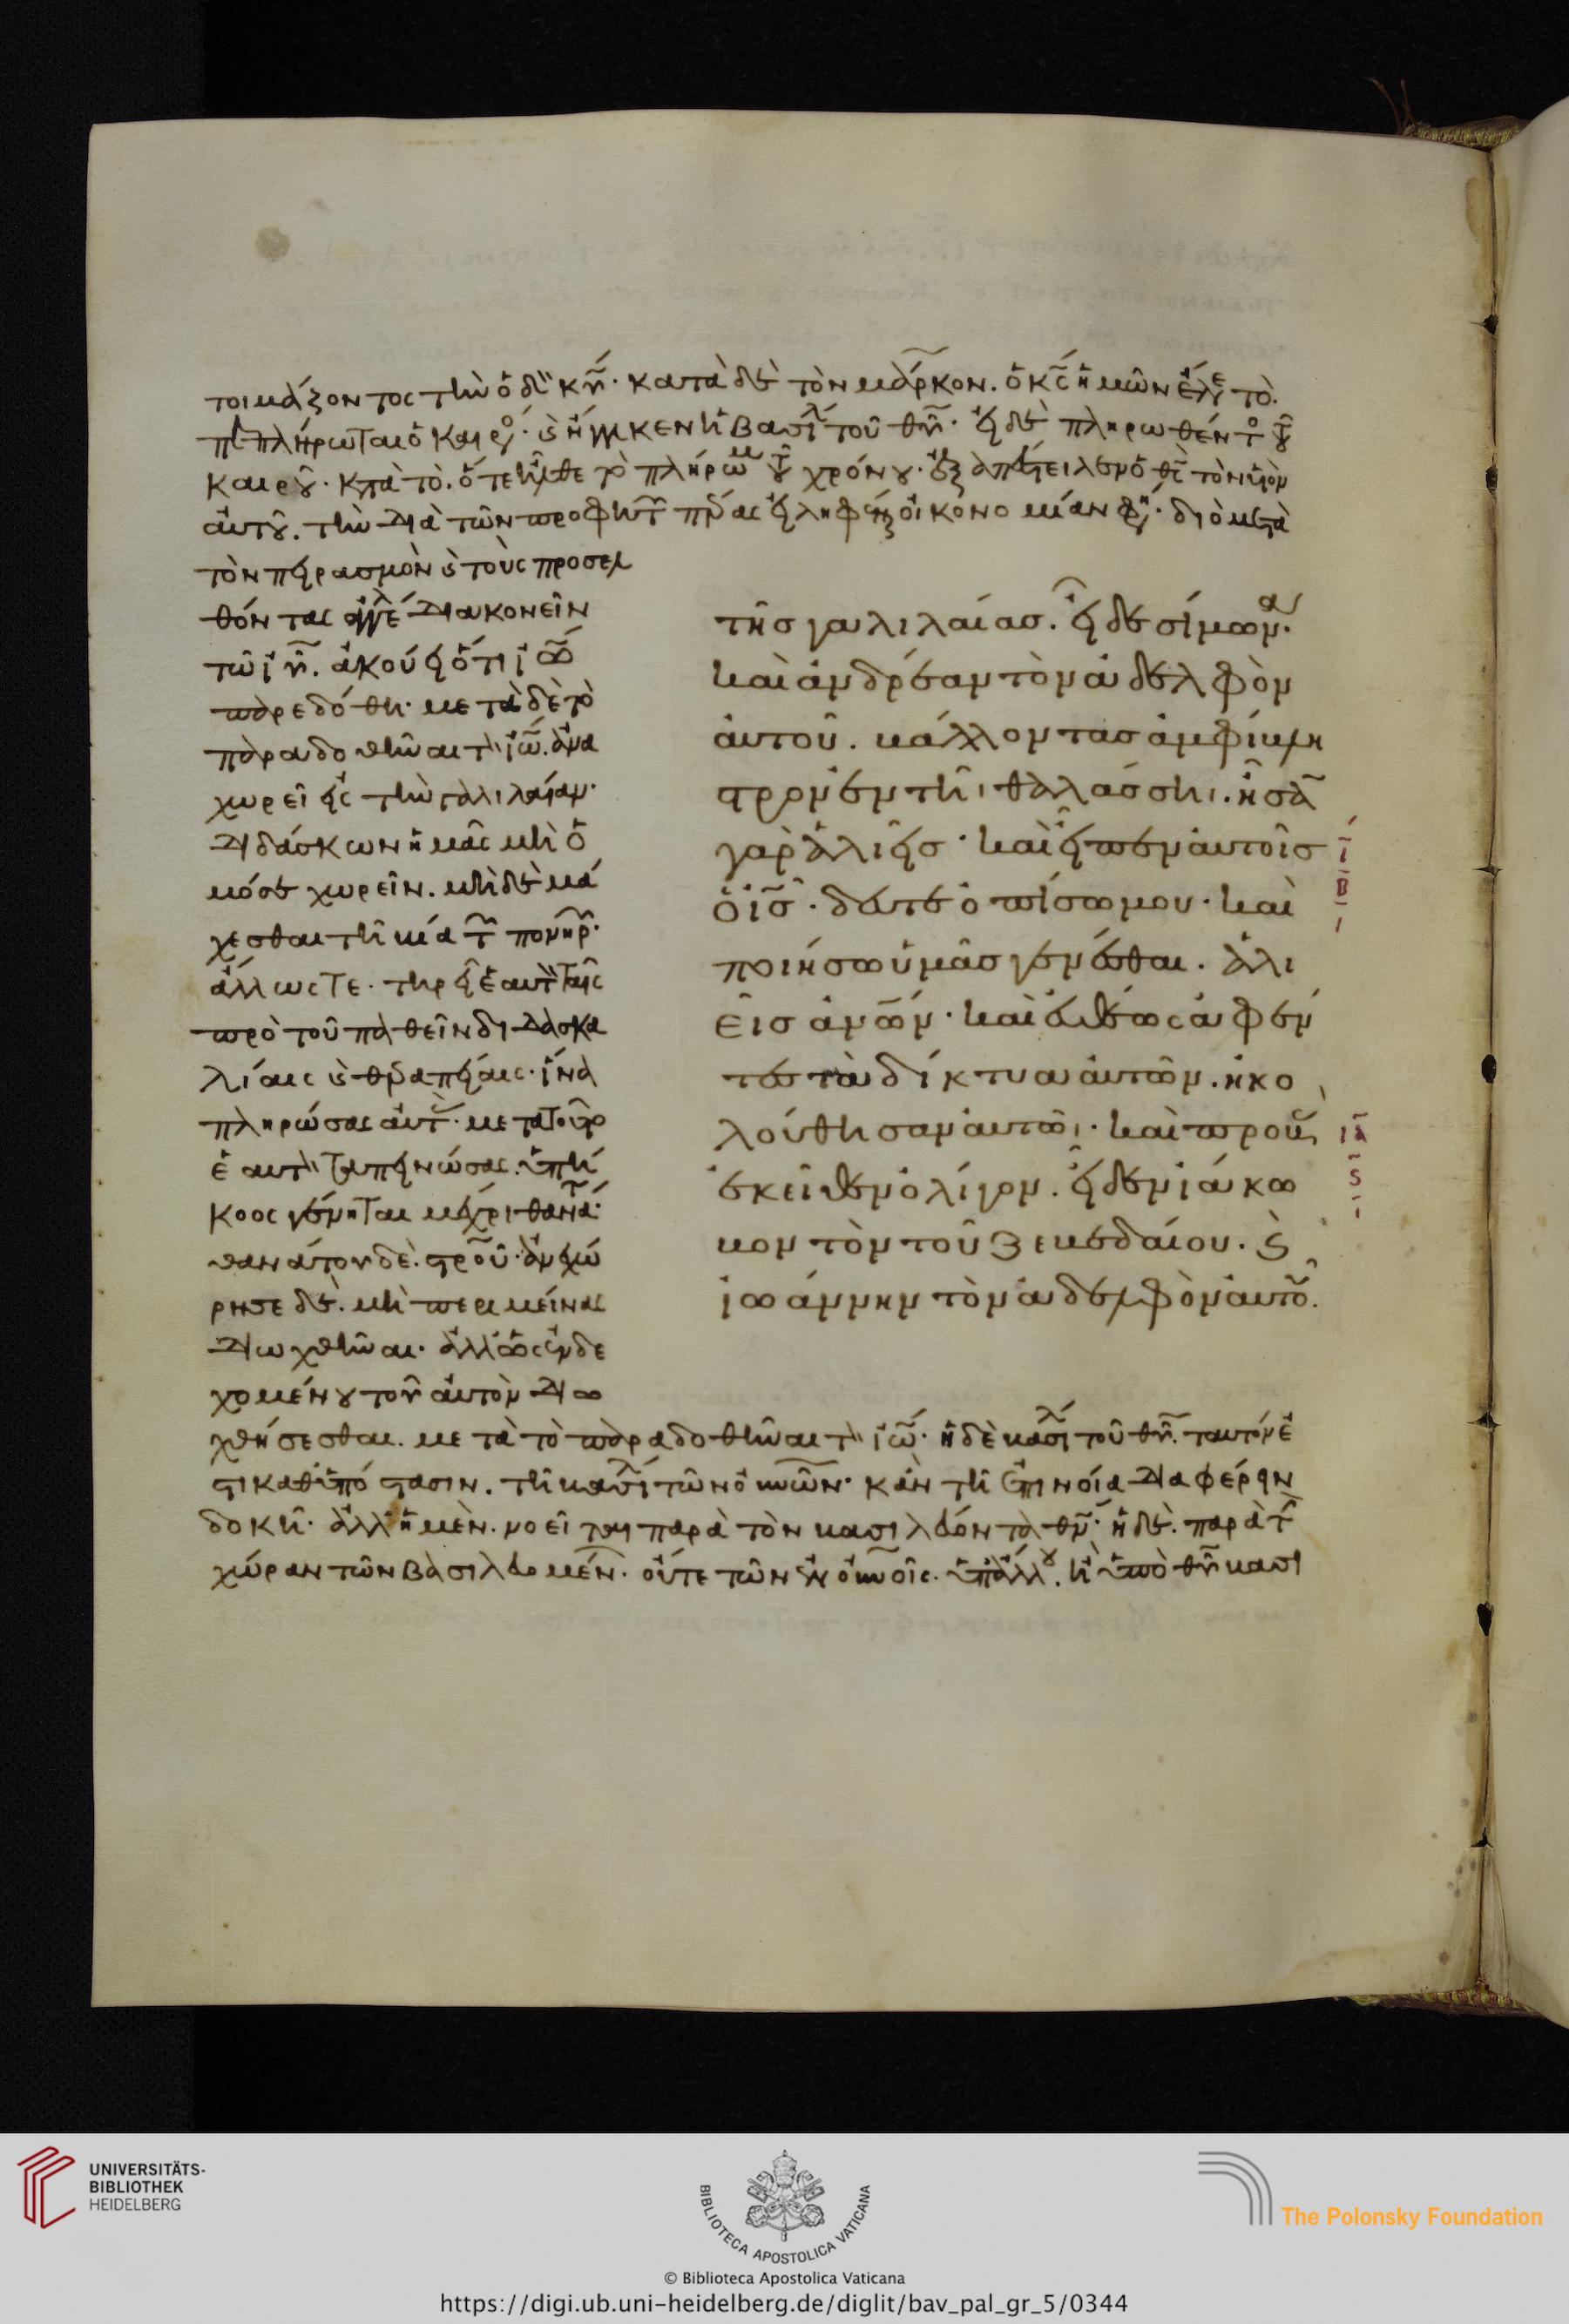 τοιμάζοντος τὴν ὁδὸν κῦ· κατὰ δὲ τὸν μάρκον. ὁ κς ἡμῶν ἔλεγε τό.
πεπλήρωται ὁ καιρός· καὶ ἤγγικεν ἡ βασιλεία τοῦ θῦ· εἰ δὲ πληρωθέντος τοῦ
καιροῦ. κατὰ τό. ὅτε ἦλθε τὸ πλήρωμα τοῦ χρόνου. ἐξαπέστειλεν ὁ θς τὸν υἱὸν
αὐτοῦ. τὴν διὰ τῶν προφητῶν οἰκονομίαν διὸ μετὰ
τὸν πειρασμὸν καὶ τοὺς προσελ
θόντας ἀγγέλους διακονεῖν
τῶ ιῦ. ἀκούει ὅτι ἰω
παρεδόθη. μετὰ δὲ τὸ
παραδοθῆναι τὸν ἰω. ἀνα
χωρεῖ εἰς τὴν γαλιλαίαν.
διδάσκων ἡμᾶς μὴ ὁ
μόσε χωρεῖν. μηδὲ μά
χεσθαι τῆ βία τῶν πονηρῶν.
ἄλλως τε. τηρεῖ ἑαυτὸν ταῖς
πρὸ τοῦ παθεῖν διδασκα
λίαις καὶ θεραπείαις. ἵνα
πληρώσας αὐτὰς. μετὰ τοῦτο
ἑαυτὸν ταπεινώσας. ὑπή
κοος γένηται μέχρι θανάτου.
θανάτου δὲ. σταυροῦ. ἀνεχώ
ρησε δὲ. μὴ περιμείνας
διωχθῆναι. ἀλλ' ὡς ἐνδε
χομένου τοῦ αὐτὸν διω
χθήσεσθαι. μετὰ τὸ παραδοθῆναι τὸν ἰω. ἡ δὲ βασιλεία τοῦ θῦ. ταυτόν ἐ
στι καθ' ὑπόστασιν. τῆ βασιλεία τῶν οὐνῶν. κἂν τῆ ἐπινοία διαφέρειν
δοκῆ. ἀλλ' ἡ μὲν. νοεῖται παρὰ τὸν βασιλεύοντα θν. ἡ δὲ. παρὰ τὴν
χώραν τῶν βασιλευομένων. οὔτε τῶν ἐν οὐνοῖς. ὑπ' ἄλλου. ἢ ὑπὸ θῦ βασι
τῆσ γαλιλαίασ. εἶδε σίμωνα·
καὶ ἀνδρέαν τὸν ἀδελφὸν
αὐτοῦ. βάλλοντασ ἀμφίβλη
στρον ἐν τῆι θαλάσσηι. ἦσαν
γὰρ ἁλιεῖσ· καὶ εἶπεν αὐτοῖσ
ὁ ισ· δεῦτε ὀπίσω μου· καὶ
ποιήσω ὑμᾶσ γενέσθαι. ἁλι
εῖσ ἀνων· καὶ εὐθέωσ ἀφέν
τεσ τὰ δίκτυα αὐτῶν. ἠκο
λούθησαν αὐτῶι. καὶ προβὰσ
ἐκεῖθεν ὀλίγον. εἶδεν ἰάκω
βον τὸν τοῦ ζεβεδαίου. καὶ
ἰωάννην τὸν ἀδελφὸν αὐτοῦ.
ι
β
ια
ς
UNIVERSITÄTS-
BIBLIOTHEK
HEIDELBERG
BIBLIOTECA APOSTOLICA VATICANA
The Polonsky Foundation
© Biblioteca Apostolica Vaticana
https://digi.ub.uni-heidelberg.de/diglit/bav_pal_gr_5/0344